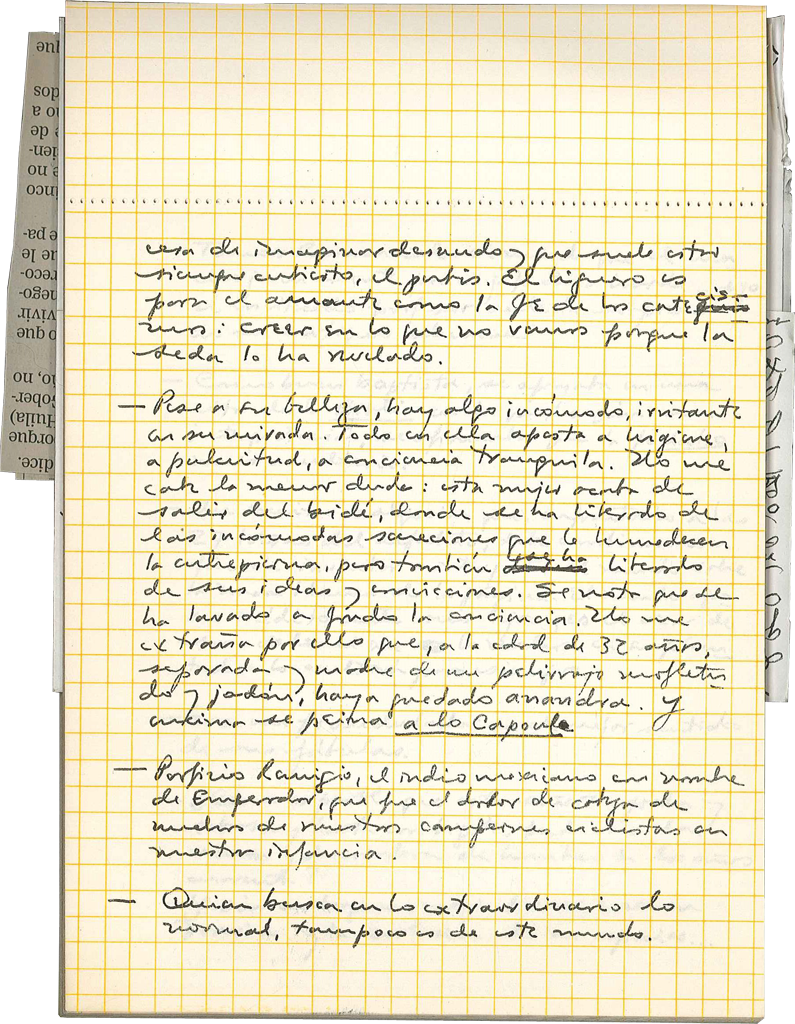 cesa de imaginar desnudo y que suele estar
siempre cubierto, el pubis. El liguero es
para el amante como la fe de los catecis-
mos: creer en lo que no vemos porque la
seda lo ha revelado.
— Pese a su belleza, hay algo incómodo, irritante
en su mirada. Todo en ella apesta a higiene,
a pulcritud, a conciencia tranquila. No me
cabe la menor duda: esta mujer acaba de
salir del bidé, donde se ha liberado de
las incómodas secreciones que le humedecen
la entrepierna, pero también que ha liberado
de sus ideas y convicciones. Se nota que se
ha lavado a fondo la conciencia. No me
extraña por ello que, a la edad de 32 años,
separada y madre de un pelirrojo mofletu-
do y jodón, haya quedado anandra. Y
encima se peina a lo Capoule
— Porfirio Remigio, el indio mexicano con nombre
de Emperador, que fue el dolor de cabeza de
muchos de nuestros campeones ciclistas en
nuestra infancia.
— Quien busca en lo extraordinario lo
normal, tampoco es de este mundo.
que
dos
no a
de
cien-
e no
inco
e pa-
ue le
reco-
nego-
vivir
o que
io, no
Gober-
Huila)
orque
dice.